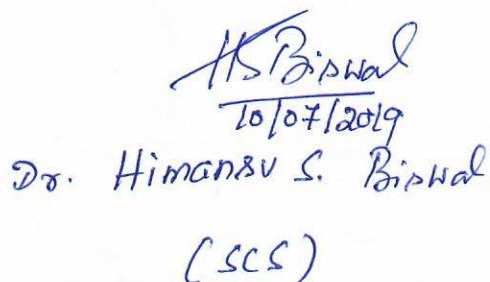 HSBiswal
10/07/2019
Dr. Himansu S. Biswal
(SCS)